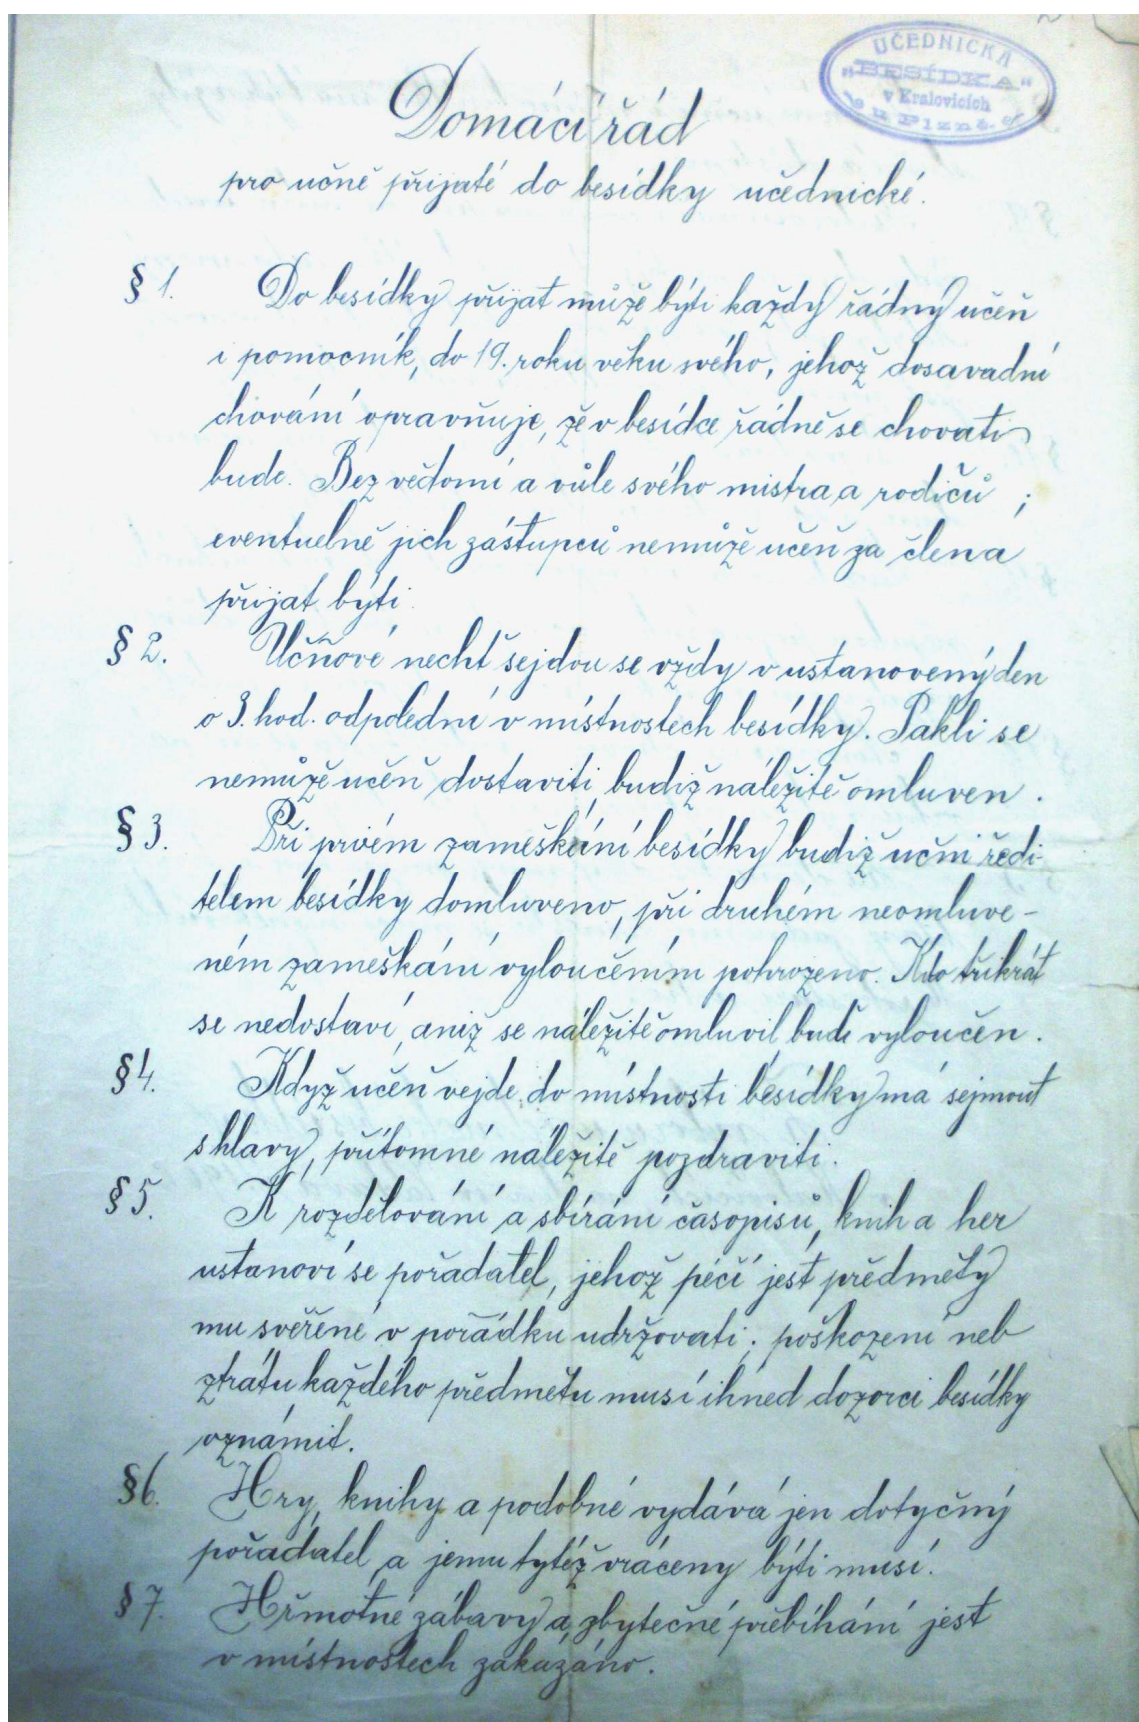 UČEDNICKÁ
"BESÍDKA"
v Kralovicích
u Plzně.
Domácí řád
pro učně přijaté do besídky učednické.
§ 1. Do besídky přijat může býti každý řádný učeň
i pomocník, do 19. roku věku svého, jehož dosavadní
chování opravňuje, že v besídce řádně se chovati
bude. Bez vědomí a vůle svého mistra a rodičů ;
eventuelně jich zástupců nemůže učeň za člena
přijat býti.
§ 2. Učňové nechť sejdou se vždy v ustanovený den
o 3. hod. odpolední v místnostech besídky. Pakli se
nemůže učeň dostaviti, budiž náležitě omluven .
§ 3. Při prvém zameškání besídky budiž učni ředi-
telem besídky domluveno, při druhém neomluve-
ném zameškání vyloučením pohrozeno. Kdo třikrát
se nedostaví, aniž se náležitě omluvil, budě vyloučen .
§ 4. Když učeň vejde do místnosti besídky má sejmout
s hlavy, přítomné náležitě pozdraviti.
§ 5. K rozdělování a sbírání časopisů, knih a her
ustanoví se pořadatel, jehož péčí jest předměty
mu svěřené v pořádku udržovati; poškození neb
ztrátu každého předmětu musí ihned dozorci besídky
oznámit.
§ 6. Hry, knihy a podobné vydává jen dotyčný
pořadatel, a jemu tytéž vráceny býti musí.
§ 7. Hřmotné zábavy a zbytečné přebíhání jest
v místnostech zakázáno.